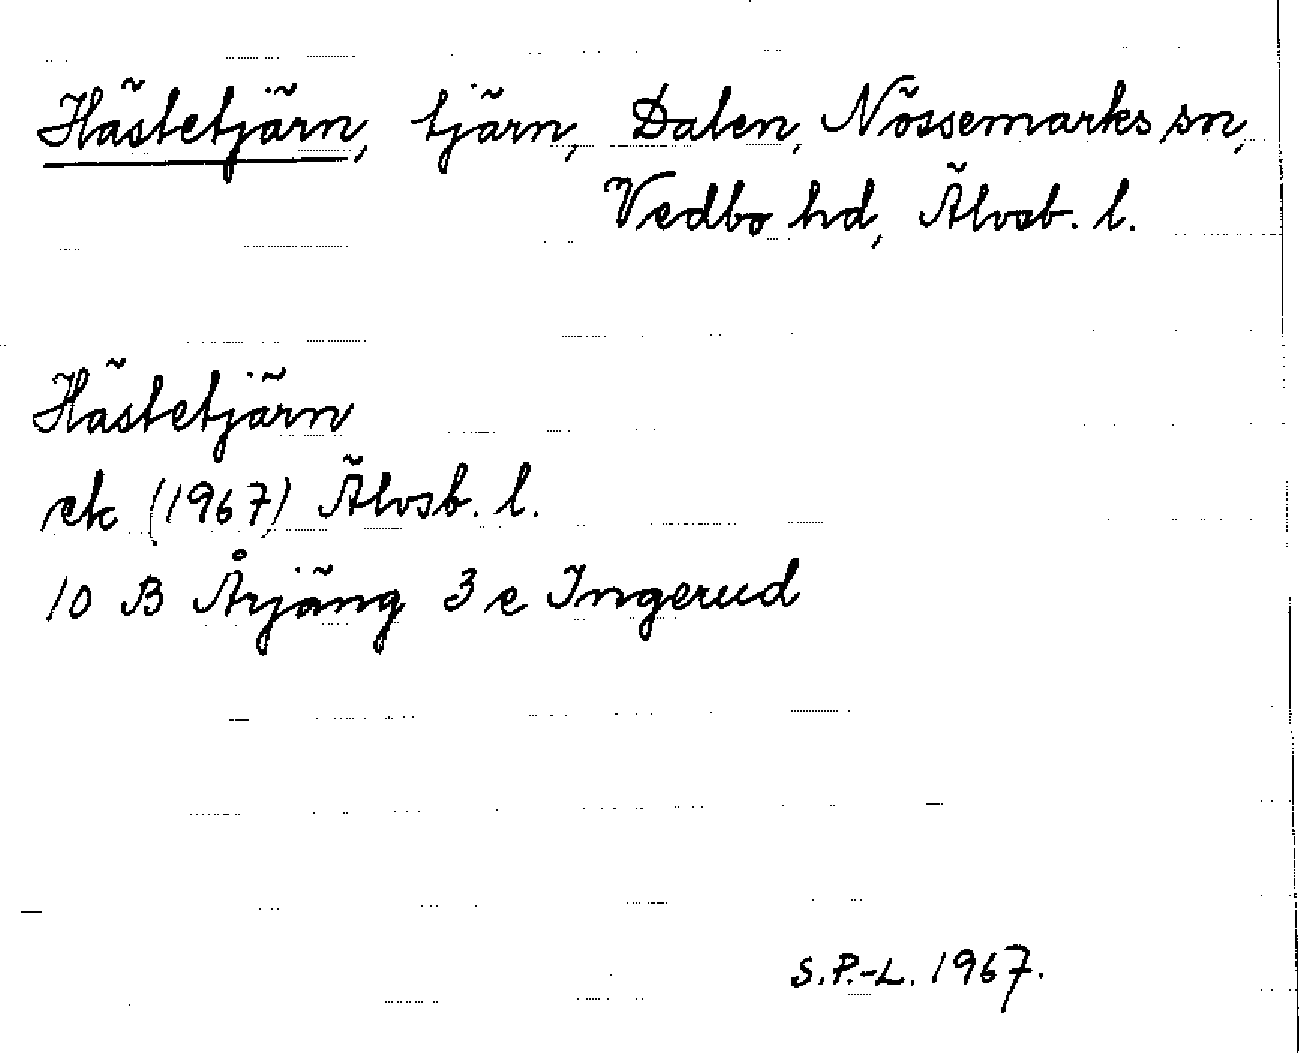 Hästetjärn, tjärn, Dalen, Nössemarks sn,
Vedbo hd, Älvsb. l.
Hästetjärn
ek (1967) Älvsb. l.
10 B Årjäng 3 e Ingerud
S.P.-L. 1967.